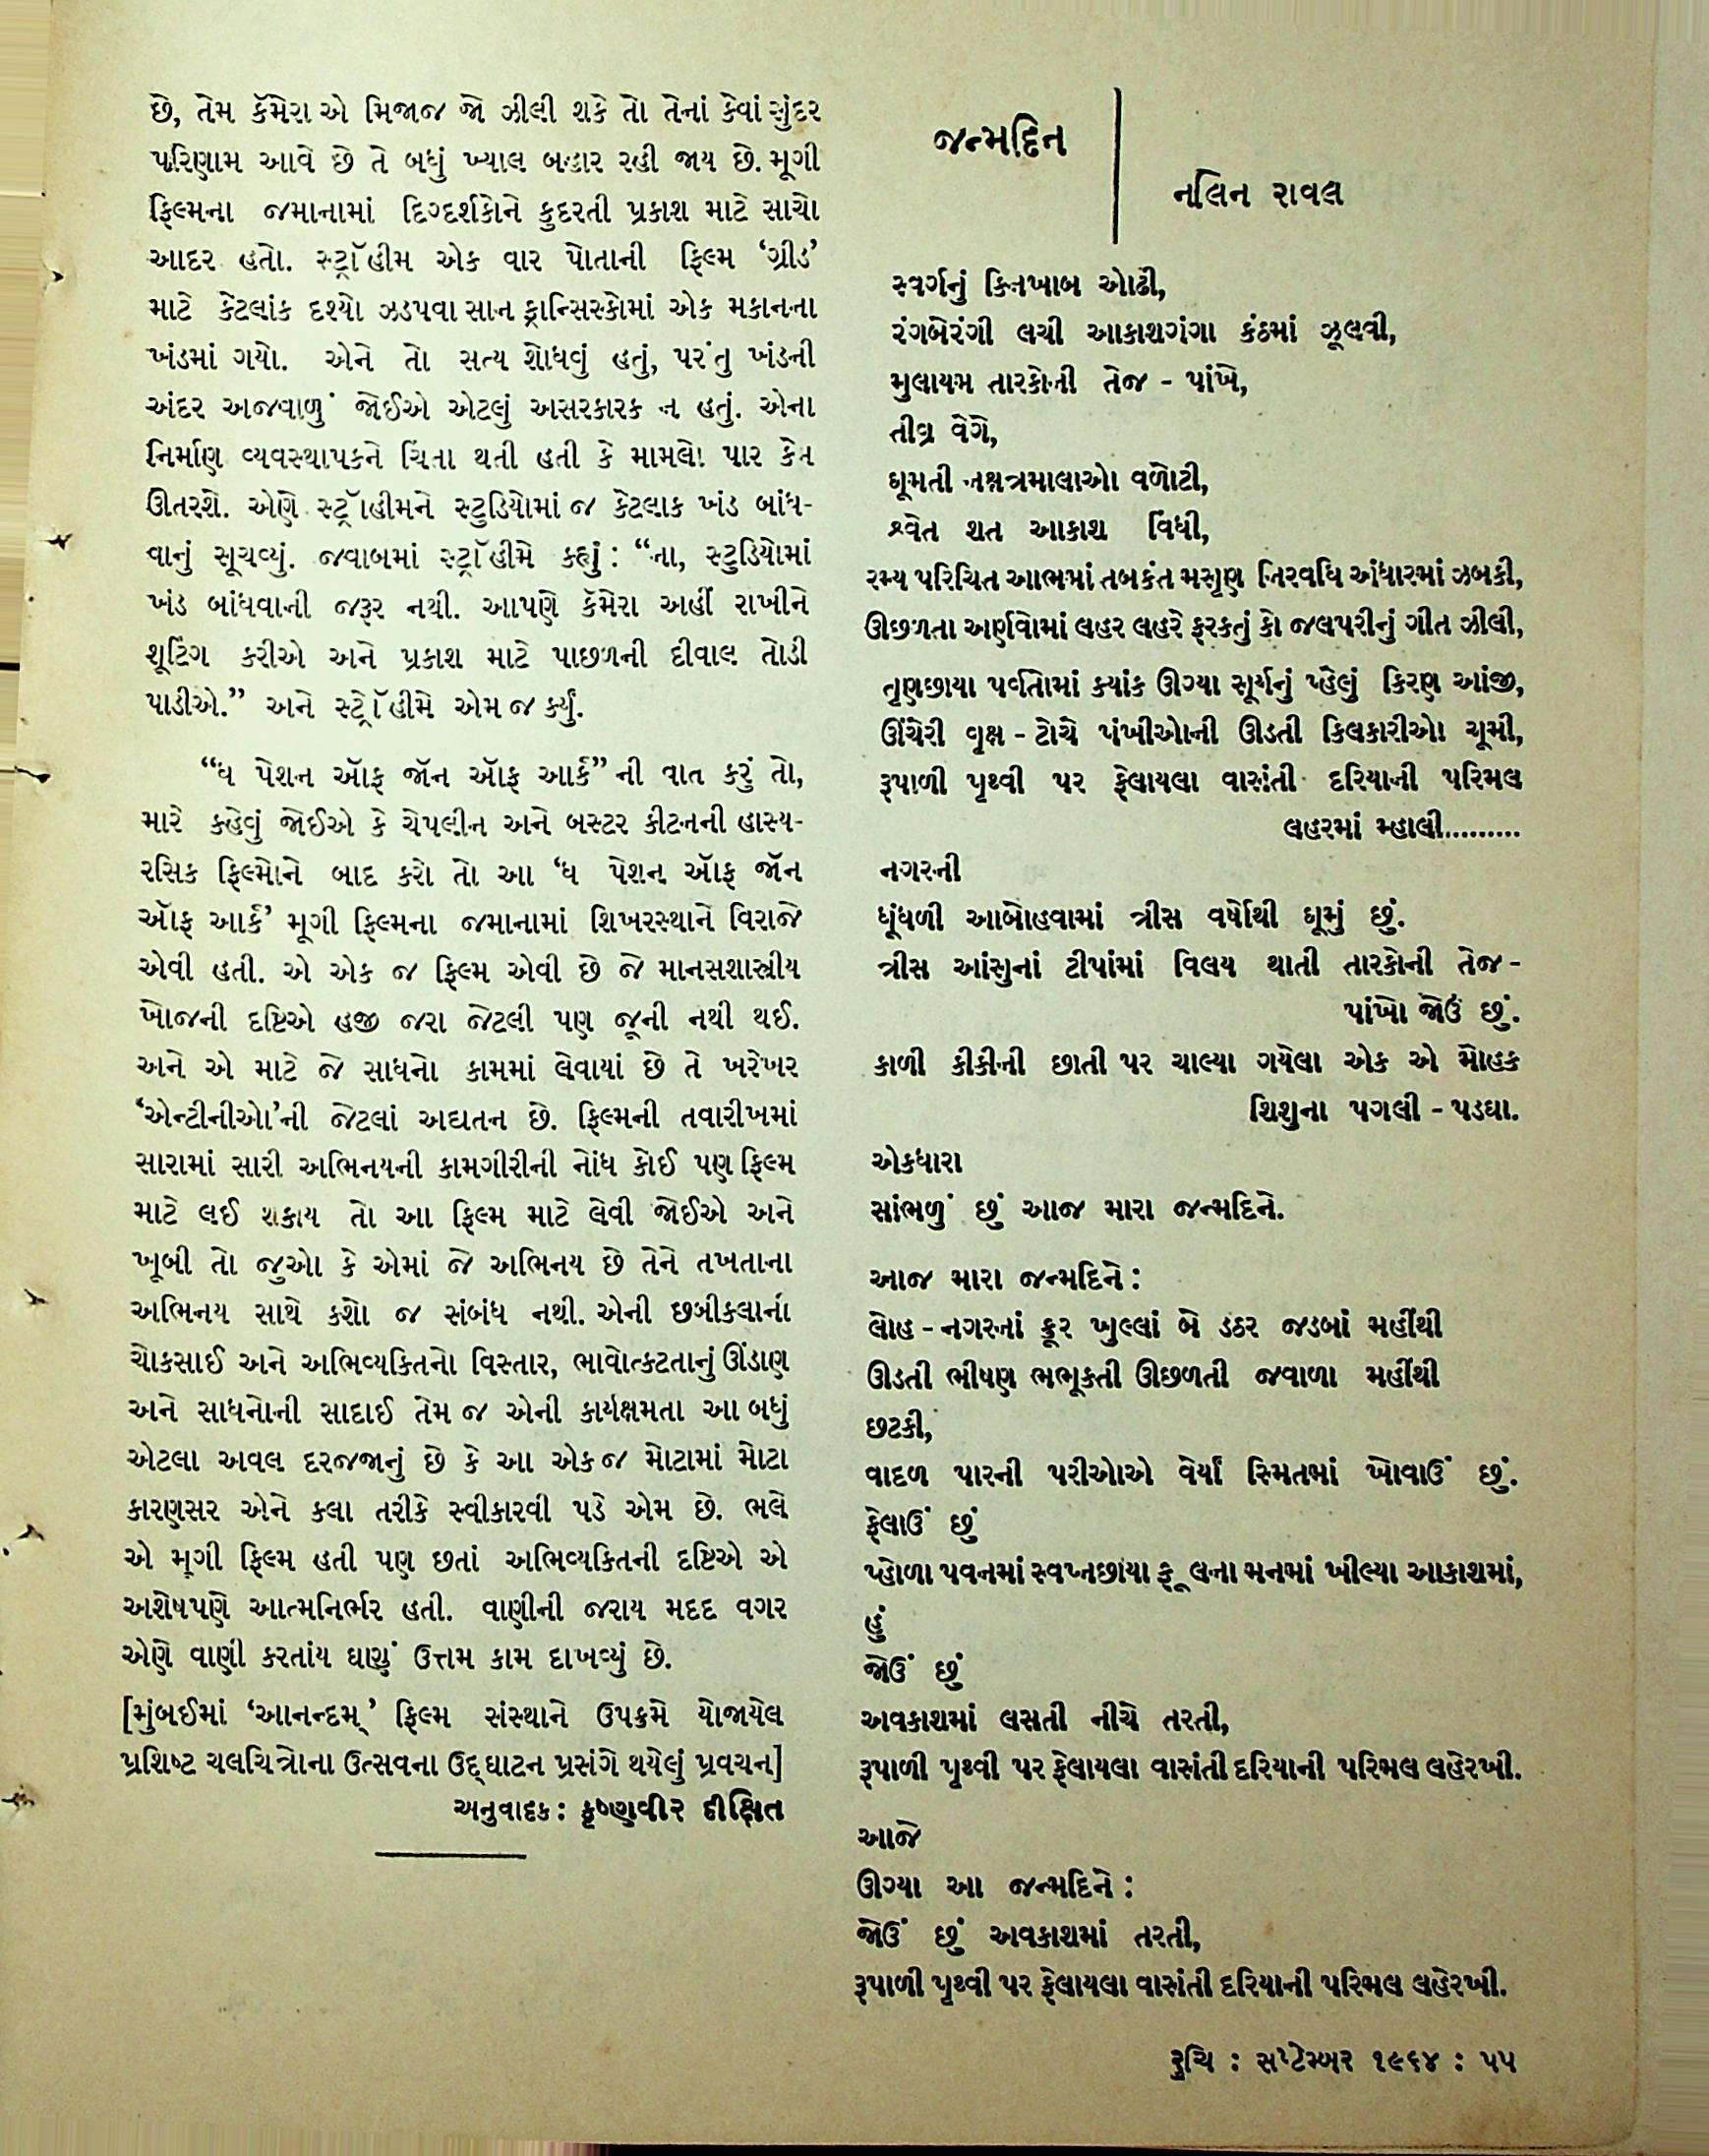 છે, તેમ કૅમેરા એ મિજાજ જો ઝીલી શકે તો તેનાં કેવાં સુંદર
પરિણામ આવે છે તે બધું ખ્યાલ બહાર રહી જાય છે. મૂગી
ફિલ્મના જમાનામાં દિગ્દર્શકોને કુદરતી પ્રકાશ માટે સાચો
આદર હતો. સ્ટ્રૉહીમ એક વાર પોતાની ફિલ્મ ‘ગ્રીડ’
માટે કેટલાંક દૃશ્યો ઝડપવા સાન ફ્રાન્સિસ્કોમાં એક મકાનના
ખંડમાં ગયો. એને તો સત્ય શોધવું હતું, પરંતુ ખંડની
અંદર અજવાળું જોઈએ એટલું અસરકારક ન હતું. એના
નિર્માણ વ્યવસ્થાપકને ચિંતા થતી હતી કે મામલો પાર કેમ
ઊતરશે. એણે સ્ટ્રૉહીમને સ્ટુડિયોમાં જ કેટલાક ખંડ બાંધ-
વાનું સૂચવ્યું. જવાબમાં સ્ટ્રૉહીમે કહ્યું : “ના, સ્ટુડિયોમાં
ખંડ બાંધવાની જરૂર નથી. આપણે કૅમેરા અહીં રાખીને
શૂટિંગ કરીએ અને પ્રકાશ માટે પાછળની દીવાલ તોડી
પાડીએ.” અને સ્ટ્રૉહીમે એમ જ કર્યું.
“ધ પેશન ઑફ જૉન ઑફ આર્ક” ની વાત કરું તો,
મારે કહેવું જોઈએ કે ચેપલીન અને બસ્ટર કીટનની હાસ્ય-
રસિક ફિલ્મોને બાદ કરો તો આ ‘ધ પેશન ઑફ જૉન
ઑફ આર્ક’ મૂગી ફિલ્મના જમાનામાં શિખરસ્થાને વિરાજે
એવી હતી. એ એક જ ફિલ્મ એવી છે જે માનસશાસ્ત્રીય
ખોજની દૃષ્ટિએ હજી જરા જેટલી પણ જૂની નથી થઈ.
અને એ માટે જે સાધનો કામમાં લેવાયાં છે તે ખરેખર
‘એન્ટીનીઓ’ની જેટલાં અદ્યતન છે. ફિલ્મની તવારીખમાં
સારામાં સારી અભિનયની કામગીરીની નોંધ કોઈ પણ ફિલ્મ
માટે લઈ શકાય તો આ ફિલ્મ માટે લેવી જોઈએ અને
ખૂબી તો જુઓ કે એમાં જે અભિનય છે તેને તખતાના
અભિનય સાથે કશો જ સંબંધ નથી. એની છબીકલાની
ચોકસાઈ અને અભિવ્યક્તિનો વિસ્તાર, ભાવોત્કટતાનું ઊંડાણ
અને સાધનોની સાદાઈ તેમ જ એની કાર્યક્ષમતા આ બધું
એટલા અવલ દરજજાનું છે કે આ એક જ મોટામાં મોટા
કારણસર એને કલા તરીકે સ્વીકારવી પડે એમ છે. ભલે
એ મૂગી ફિલ્મ હતી પણ છતાં અભિવ્યક્તિની દૃષ્ટિએ એ
અશેષપણે આત્મનિર્ભર હતી. વાણીની જરાય મદદ વગર
એણે વાણી કરતાંય ઘણું ઉત્તમ કામ દાખવ્યું છે.
[મુંબઈમાં ‘આનન્દમ્’ ફિલ્મ સંસ્થાને ઉપક્રમે યોજાયેલ
પ્રશિષ્ટ ચલચિત્રોના ઉત્સવના ઉદ્‌ઘાટન પ્રસંગે થયેલું પ્રવચન]
અનુવાદક : કૃષ્ણવીર દીક્ષિત
જન્મદિન
નલિન રાવલ
સ્વર્ગનું કિનખાબ ઓઢી,
રંગબેરંગી લચી આકાશગંગા કંઠમાં ઝૂલવી,
મુલાયમ તારકોની તેજ - પાંખે,
તીવ્ર વેગે,
ઘૂમતી નક્ષત્રમાલાઓ વળોટી,
શ્વેત શત આકાશ વિંધી,
રમ્ય પરિચિત આભમાં તબકંત મસૃણ નિરવધિ અંધારમાં ઝબકી,
ઊછળતા અર્ણવોમાં લહર લહરે ફરકતું કો જલપરીનું ગીત ઝીલી,
તૃણછાયા પર્વતોમાં ક્યાંક ઊગ્યા સૂર્યનું પ્હેલું કિરણ આંજી,
ઊંચેરી વૃક્ષ - ટોચે પંખીઓની ઊડતી કિલકારીઓ ચૂમી,
રૂપાળી પૃથ્વી પર ફેલાયલા વાસંતી દરિયાની પરિમલ
લહરમાં મ્હાલી.........
નગરની
ધૂંધળી આબોહવામાં ત્રીસ વર્ષોથી ઘૂમું છું.
ત્રીસ આંસુનાં ટીપાંમાં વિલય થાતી તારકોની તેજ -
પાંખો જોઉં છું.
કાળી કીકીની છાતી પર ચાલ્યા ગયેલા એક એ મોહક
શિશુના પગલી - પડઘા.
એકધારા
સાંભળું છું આજ મારા જન્મદિને.
આજ મારા જન્મદિને :
લોહ - નગરનાં ક્રૂર ખુલ્લાં બે ડઠર જડબાં મહીંથી
ઊડતી ભીષણ ભભૂકતી ઊછળતી જવાળા મહીંથી
છટકી,
વાદળ પારની પરીઓએ વેર્યાં સ્મિતમાં ખોવાઉં છું.
ફેલાઉં છું
પ્હોળા પવનમાં સ્વપ્નછાયા ફૂલના મનમાં ખીલ્યા આકાશમાં,
હું
જોઉં છું
અવકાશમાં લસતી નીચે તરતી,
રૂપાળી પૃથ્વી પર ફેલાયલા વાસંતી દરિયાની પરિમલ લહેરખી.
આજે
ઊગ્યા આ જન્મદિને :
જોઉં છું અવકાશમાં તરતી,
રૂપાળી પૃથ્વી પર ફેલાયલા વાસંતી દરિયાની પરિમલ લહેરખી.
રુચિ : સપ્ટેમ્બર ૧૯૬૪ : ૫૫